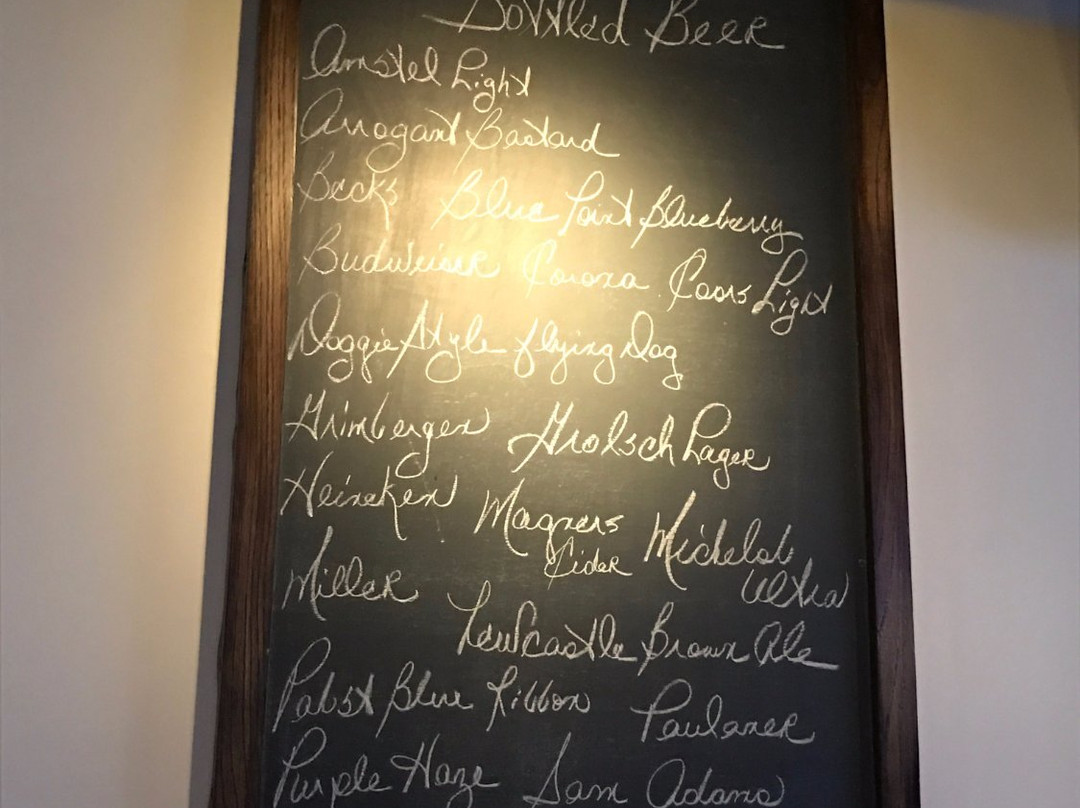 Bottled Beer
Amstel Light
Arrogant Bastard
Becks Blue Point Blueberry
Budweiser Corona Coors Light
Doggie Style flying Dog
Grimbergen Grolsch Lager
Heineken Magners Cider Michelob Ultra
Miller Newcastle Brown Ale
Pabst Blue Ribbon Paulaner
Purple Haze Sam Adams